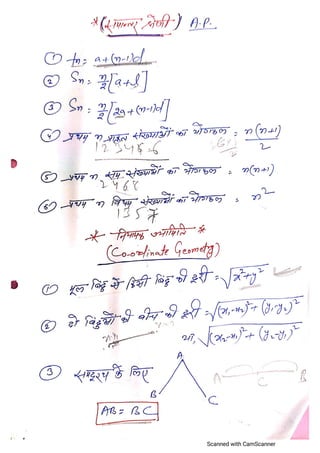 * (समान्तर श्रेणी) A.P.
① tn = a+(n-1)d
② Sn = n/2 [a+l]
③ Sn = n/2 [2a+(n-1)d]
④ प्रथम n प्राकृत संख्याओं का योगफल = n(n+1)/2
1 2 3 4 5 6
⑤ प्रथम n सम संख्याओं का योगफल = n(n+1)
2 4 6 8
⑥ प्रथम n विषम संख्याओं का योगफल = n²
1 3 5 7
* निर्देशांक ज्यामिति *
(Co-ordinate Geometry)
① मूल बिंदु से किसी बिंदु की दूरी = √x²+y²
② दो बिंदुओं के बीच की दूरी = √(x₁-x₂)²+(y₁-y₂)²
या, √(x₂-x₁)²+(y₂-y₁)²
③ समदूरस्थ के लिए
A
B C
A C B
AB = BC
Scanned with CamScanner